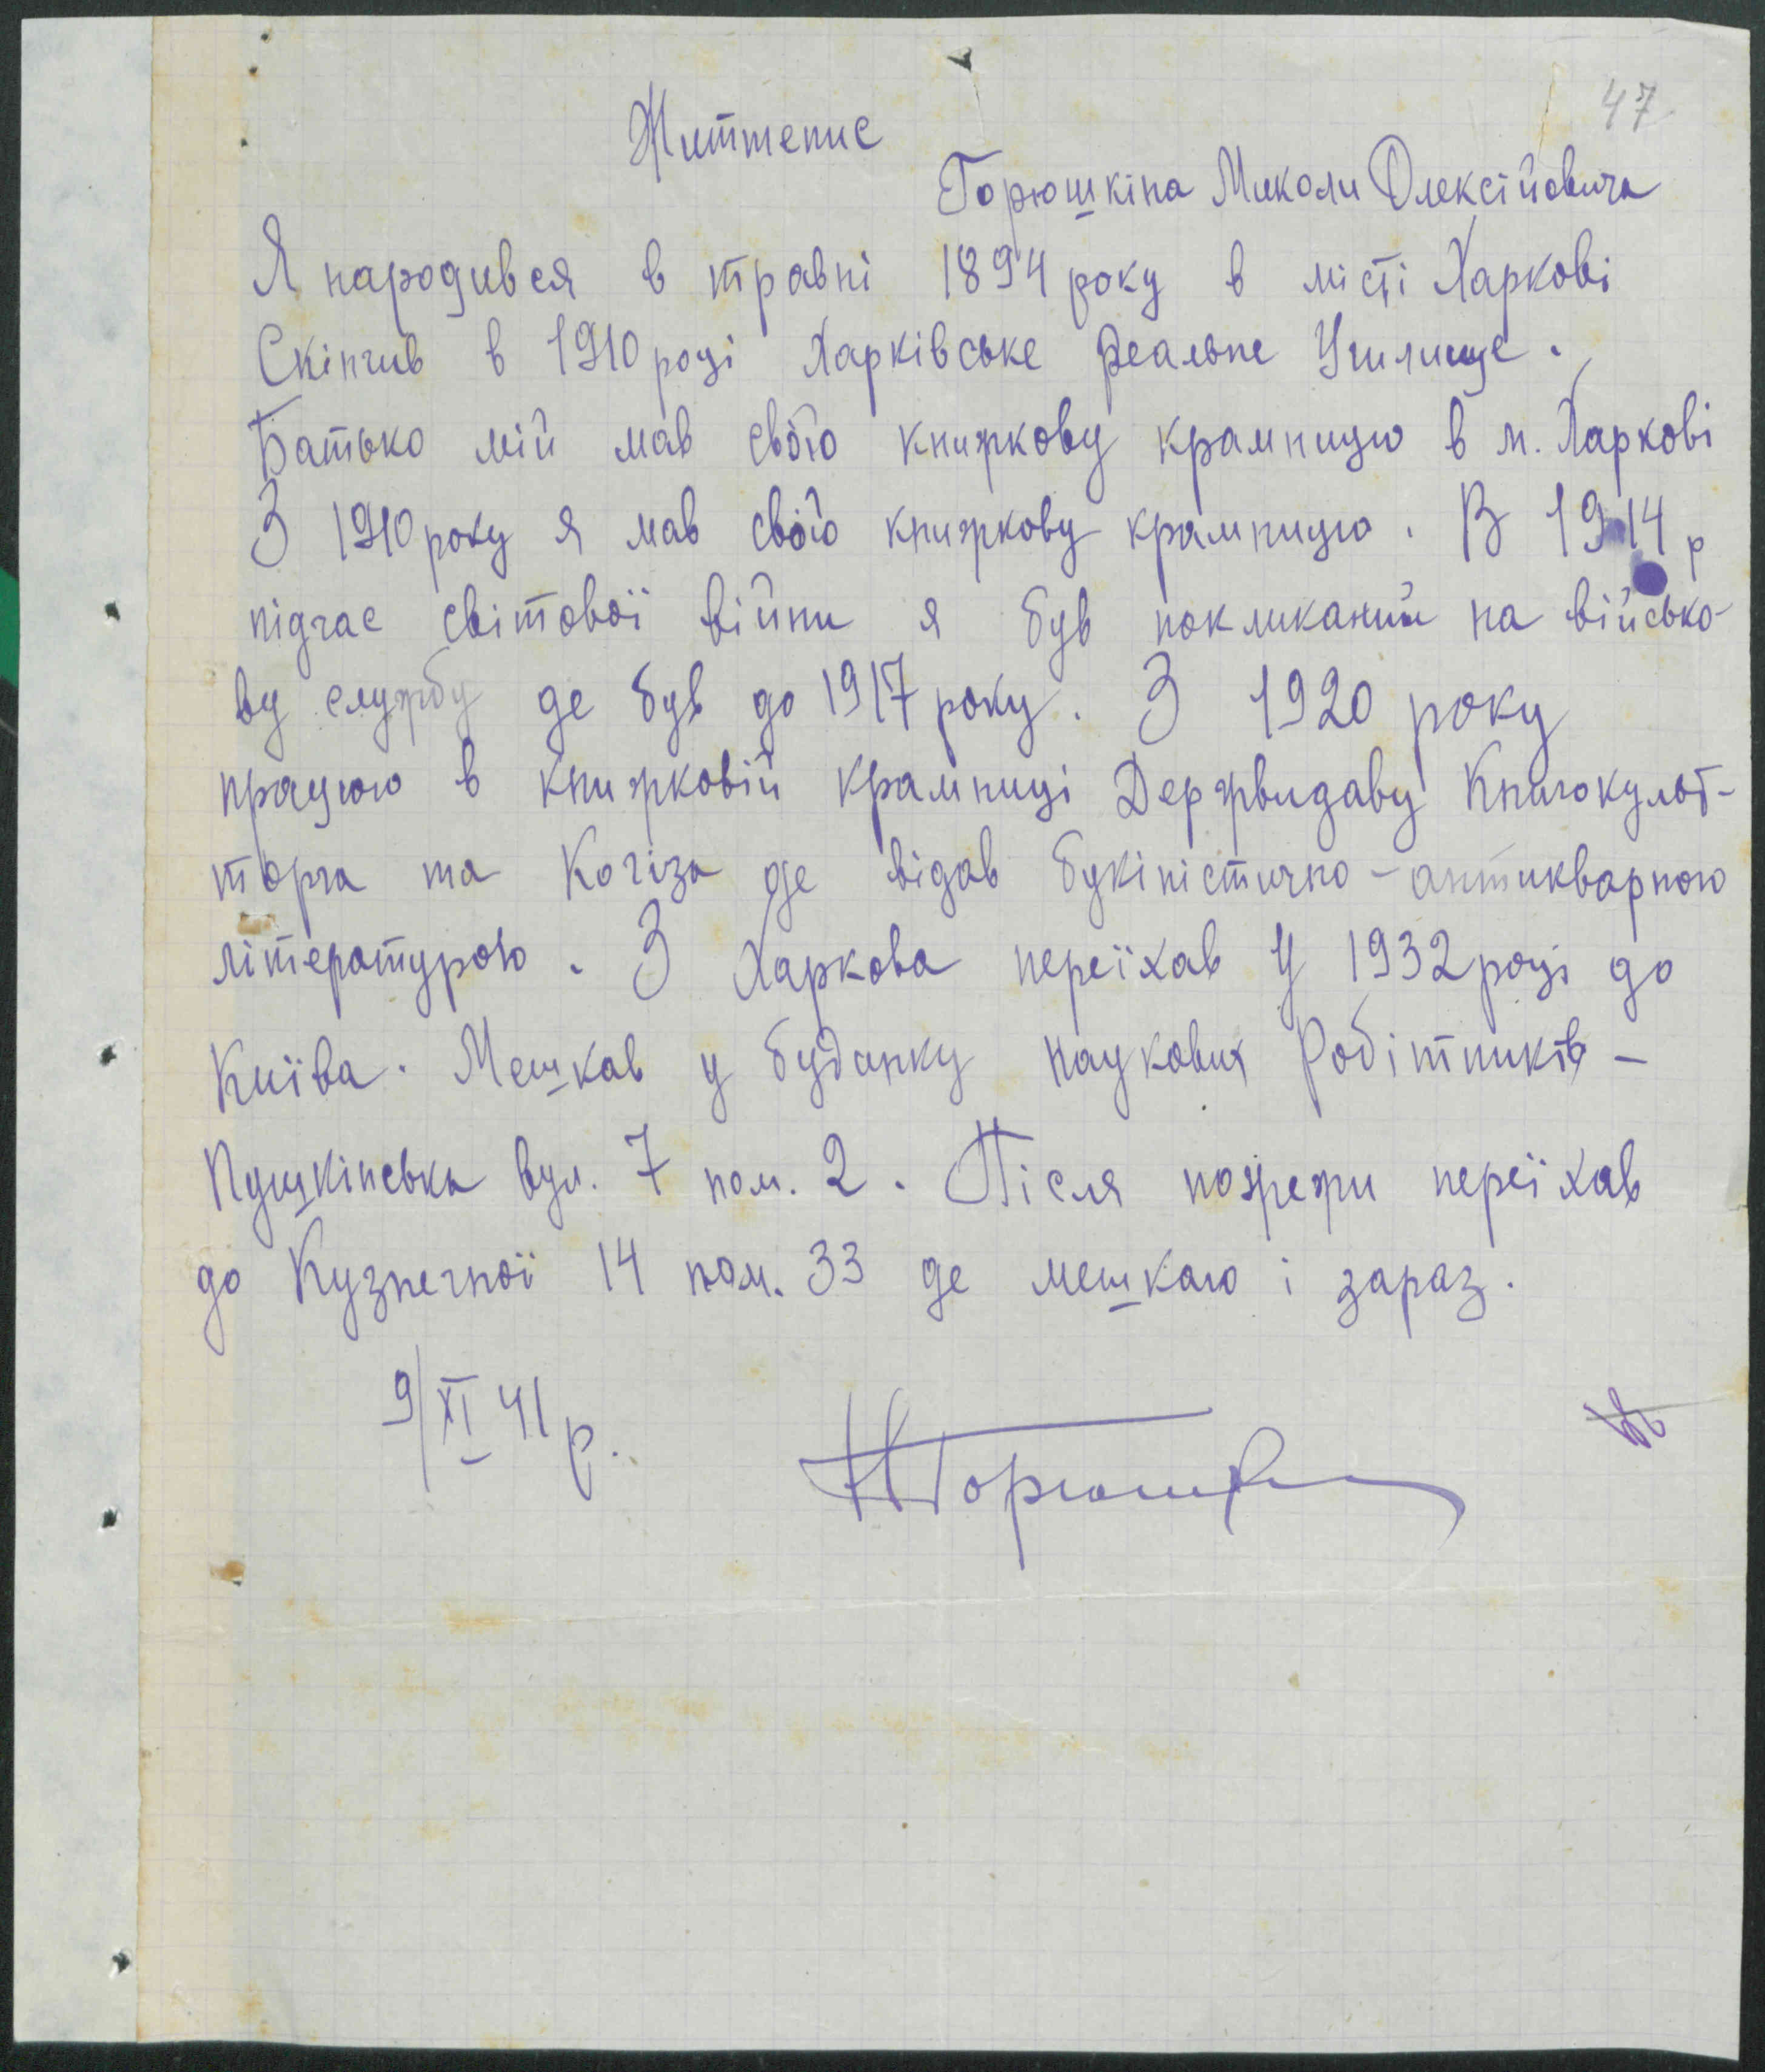 47
Життепис
Горюшкіна Миколи Олексійовича
Я народився в травні 1894 року в місті Харкові
Скінчив в 1910 році Харківське Реальне Училище.
Батько мій мав свою книжкову крамницю в м. Харкові
З 1910 року я мав свою книжкову крамницю. В 1914 р
підчас світової війни я був покликаний на військо-
ву службу де був до 1917 року. З 1920 року
працюю в книжковій крамниці Держвидаву Книгокульт-
торга та Когіза де відав букіністично-антикварною
літературою. З Харкова переїхав у 1932 році до
Київа. Мешкав у будинку Наукових Робітників -
Пушкінська вул. 7 пом. 2. Після пожежи переїхав
до Кузнечної 14 пом. 33 де мешкаю і зараз.
9/XI 41 р.
НГорюшкин